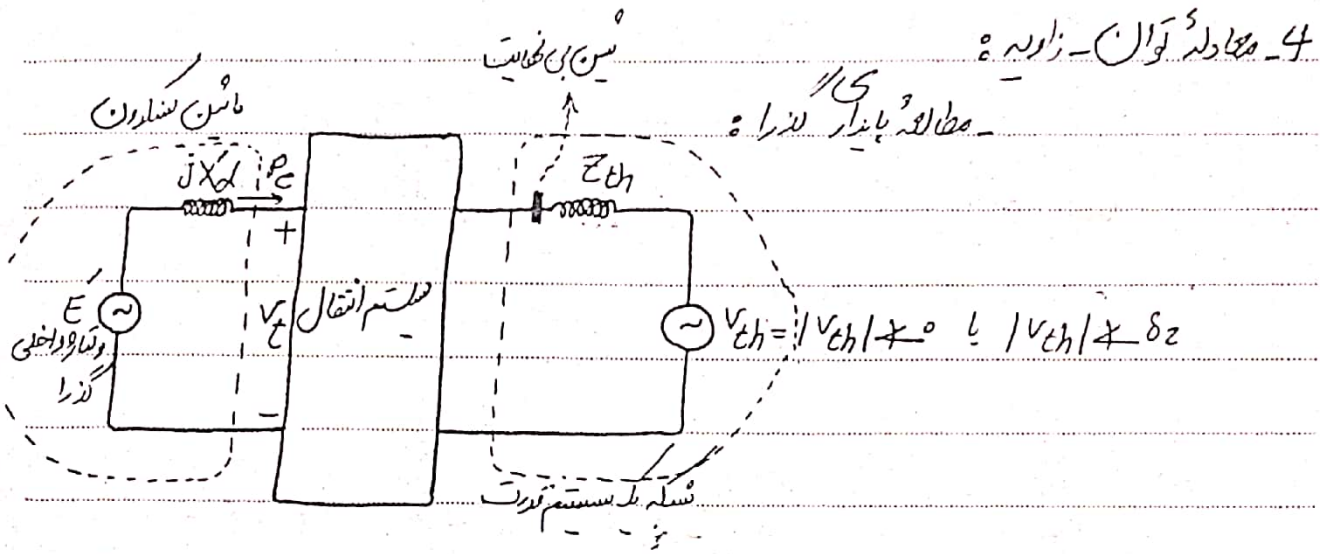 4- معادلهٔ توان - زاویه :
- مطالعهٔ پایداری گذرا :
شین بی نهایت
ماشین سنکرون
jX'd
Pe
Zth
+
E'
ولتاژ داخلی
گذرا
Vt
سیستم انتقال
Vth = |Vth| ∠0 یا |Vth| ∠δ2
-
شبکه یک سیستم قدرت